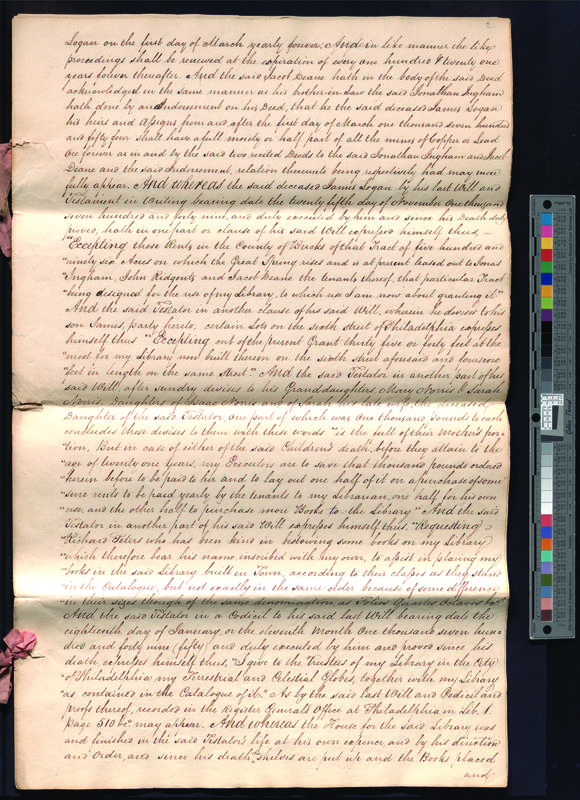 2
Logan on the first day of March yearly forever; And in like manner the like
proceedings shall be renewed at the expiration of every one hundred & twenty one
years forever thereafter. And the said Jacob Deane hath in the body of the said Deed
acknowledged in the same manner as his brother in Law the said Jonathan Ingham
hath done by an Indorsement on his Deed, that he the said deceased James Logan
his heirs and assigns from and after the first day of March one thousand seven hundred
and fifty four shall have a full moiety or half part of all the mines of Copper or Lead
Ore forever as in and by the said two recited Deeds to the said Jonathan Ingham and Jacob
Deane and the said Indorsement, relation thereunto being respectively had may more
fully appear. And whereas the said deceased James Logan by his last Will and
Testament in Writing bearing date the twenty fifth day of November One thousand
seven hundred and forty nine, and duly executed by him and since his Death duly
proved, hath in one part or clause of his said Will expressed himself thus, —
"Excepting those Rents in the County of Bucks of that Tract of five hundred and
"ninety six Acres on which the Great Spring rises and is at present leased out to Jonas
"Ingham, John Kidgents and Jacob Deane the tenants thereof, that particular Tract
"being designed for the use of my Library, to which use I am now about granting it."
And the said Testator in another clause of his said Will, wherein he devises to his
son James, party hereto, certain Lots on the sixth street of Philadelphia expresses
himself thus "Excepting out of the present Grant thirty five or forty feet at the
"most for my Library now built thereon on the sixth street aforesaid and fourscore
"feet in length on the same street." And the said Testator in another part of his
said Will, after sundry devises to his Granddaughters Mary Norris & Sarah
Norris Daughters of Isaac Norris and of Sarah his late wife, the deceased
Daughter of the said Testator One part of which was One thousand Pounds to each
concludes those devises to them with these words "is the full of their Mother's por-
"tion, But in case of either of the said Children's death, before they attain to the
"age of twenty one years, my Executors are to save that thousand pounds ordered
"herein before to be paid to her and to lay out one half of it on a purchase of some
"sure rents to be paid yearly by the tenants to my Librarian, one half for his own
"use, and the other half to purchase more Books to the Library" And the said
Testator in another part of his said Will expresses himself thus, "Requesting
"Richard Peters who has been kind in bestowing some books on my Library
"which therefore bear his name, inscribed with my own, to assist in placing my
"books in the said Library built in Town, according to their classes as they stand
"in the Catalogue, but not exactly in the same order because of some difference
"in their sizes though of the same denomination as Folios Quartos Octavos &c"
And the said Testator in a Codicil to his said last Will bearing date the
eighteenth day of January, or the eleventh Month One thousand seven hun-
dred and forty nine (fifty) and duly executed by him and proved since his
death, expresses himself thus, "I give to the Trustees of my Library in the City
"of Philadelphia my Terrestrial and Celestial Globes, together with my Library
"as contained in the Catalogue of it." As by the said last Will and Codicil and
proofs thereof, recorded in the Register General's Office at Philadelphia in Lib. 1.
Page 510 &c. may appear. And whereas the House for the said Library was
and finished in the said Testator's life at his own expence and by his direction
and Order, and since his death, the shelves are put up and the Books placed
and